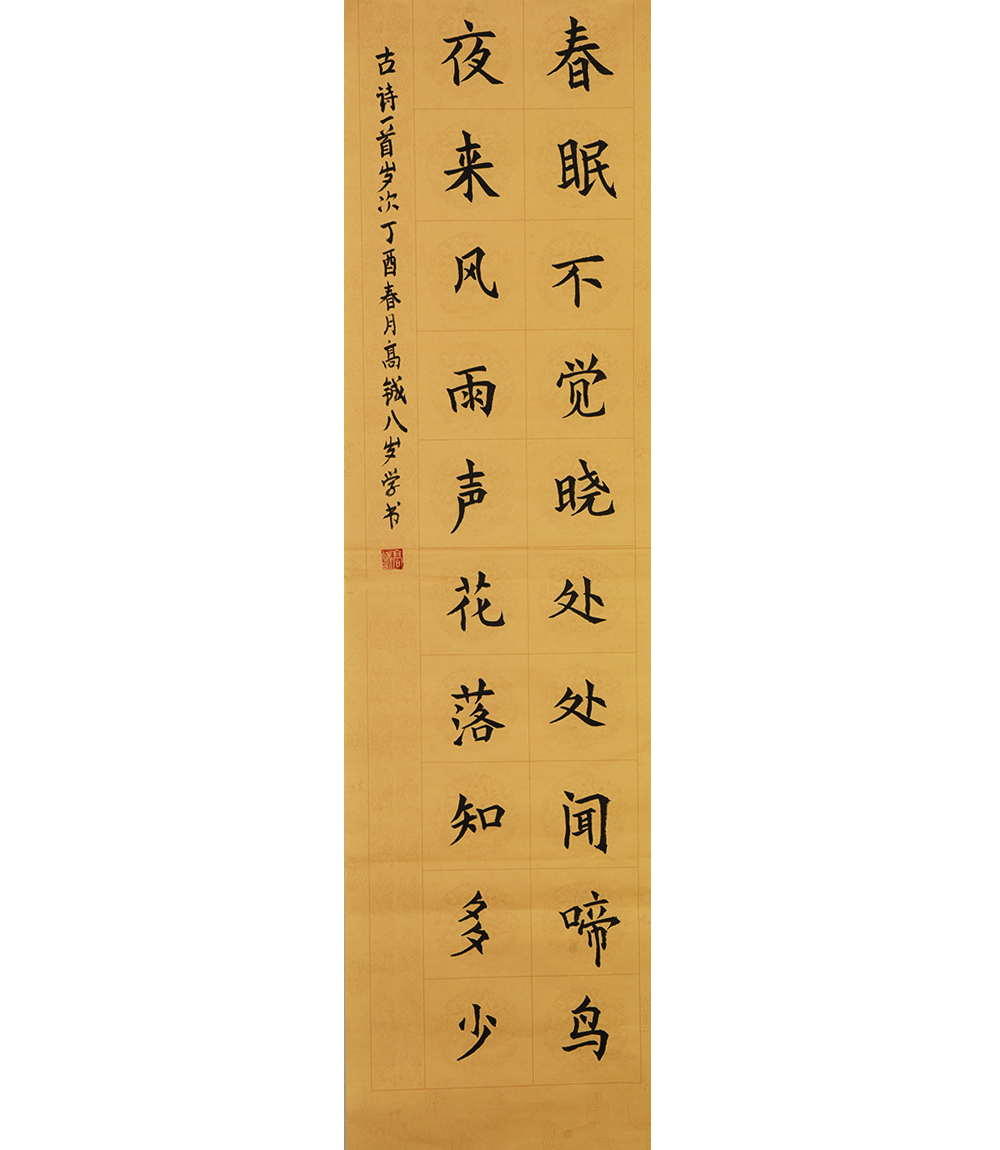 春眠不觉晓处处闻啼鸟
夜来风雨声花落知多少
古诗一首岁次丁酉春月高铖八岁学书